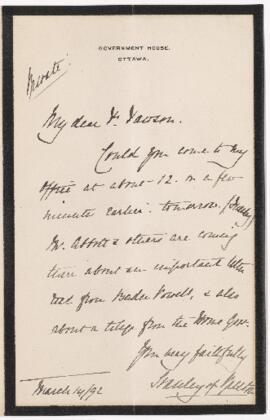 GOVERNMENT HOUSE.
OTTAWA.
Private.
My dear Dr Dawson.
Could you come to my
office at about 12. or a few
minutes earlier tomorrow. (Tuesday)
Mr. Abbott & others are coming
there about an important letter
recd from Baden Powell, & also
about a telegr. from the Home Govt.
Yrs very faithfully
Stanley of Preston
March 14/92